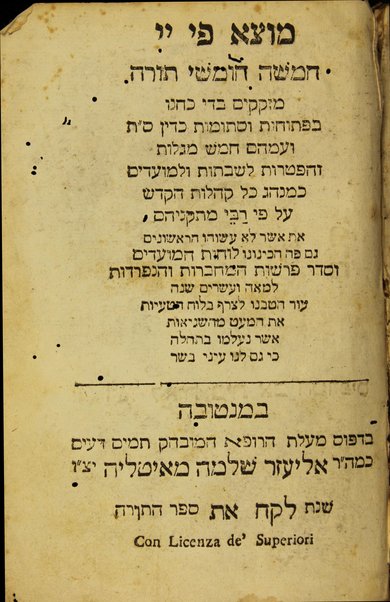 מוצא פי יי
חמשה חומשי תורה
מזקקים בדי כחנו
בפתוחות וסתומות כדין ס״ת
ועמהם חמש מגלות
והפטרות לשבתות ולמועדים
כמנהג כל קהלות הקדש
על פי רבי מתקניהם
את אשר לא עשוהו הראשונים
גם פה הכינונו לוחות המועדים
וסדר פרשות המחברות והנפרדות
למאה ועשרים שנה
עוד הטבנו לצרף בלוח הטעיות
את המעט מהשגיאות
אשר נעלמו בתחלה
כי גם לנו עיני בשר
במנטובה
בדפוס מעלת הרופא המובהק תמים דעים
כמה״ר אליעזר שלמה מאיטליה יצ״ו
שנת לקח את ספר התורה
Con Licenza de' Superiori